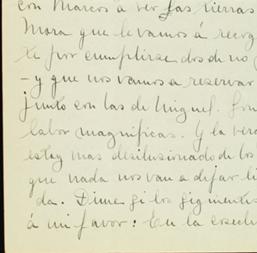 con Marcos á ver las tierras
Mora que llevamos á recog
te por cumplirse dos de no
- y que nos vamos a reservar
junto con las de Miguel. Son
labor magnificas. Y la ver
estoy mas desilusionado de los
que nada nos van a dejar li
da. Dime si los siguientes
á mi favor: En la cosech